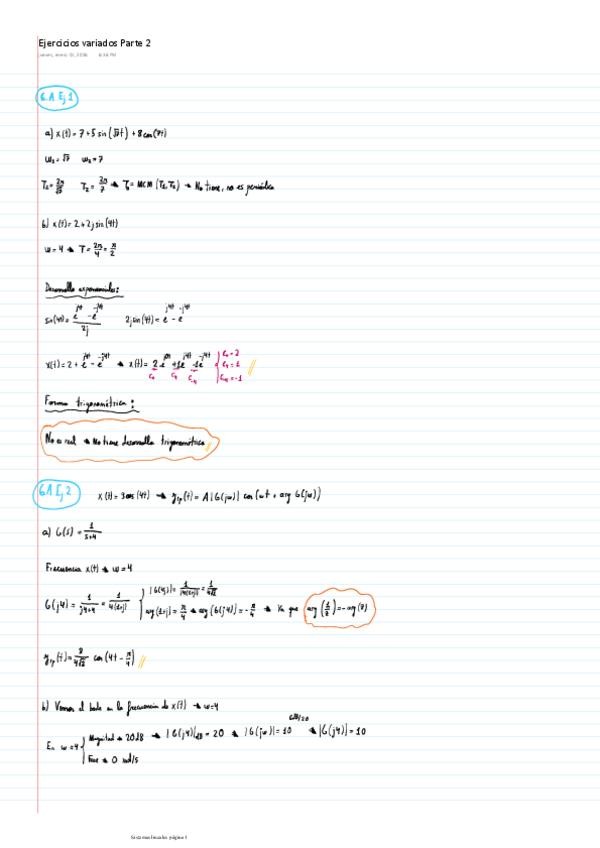 Ejercicios variados Parte 2
6.A Ej 1
a) x(t) = 7+5 sin(√7t) + 8cos(7t)
ω₁ = √7 ω₂ = 7
T₁ = 2π/√7 T₂ = 2π/7 → T₀ = MCM (T₁, T₂) → No tiene, no es periódica
b) x(t) = 2+2j sin(4t)
ω = 4 → T = 2π/4 = π/2
Desarrollo exponencial:
sin(4t) = (e^j4t - e^-j4t)/2j 2j sin(4t) = e^j4t - e^-j4t
x(t) = 2 + e^j4t - e^-j4t → x(t) = 2e^j0t + 1e^j4t - 1e^-j4t { C₀ = 2
C₀ C₁ C₋₁ C₁ = 1
C₋₁ = -1
Forma trigonométrica:
No es real → No tiene desarrollo trigonométrico
6.A Ej 2 x(t) = 3cos(4t) → y(t) = A|G(jω)| cos(ωt + arg G(jω))
a) G(s) = 1/(s+4)
Frecuencia x(t) → ω = 4
G(j4) = 1/(j4+4) = 1/(4(1+j)) { |G(4j)| = 1/|4(1+j)| = 1/4√2
arg(1+j) = π/4 → arg(G(j4)) = -π/4 → Ya que arg(1/z) = -arg(z)
cos(4t - π/4)
b) Vemos el bode en la frecuencia de x(t) → ω=4
En ω=4 { Magnitud → 20dB → |G(j4)|dB = 20 → |G(jω)| = 10^GdB/20 → |G(j4)| = 10
Fase → 0 rad/s
Sistemas lineales página 1